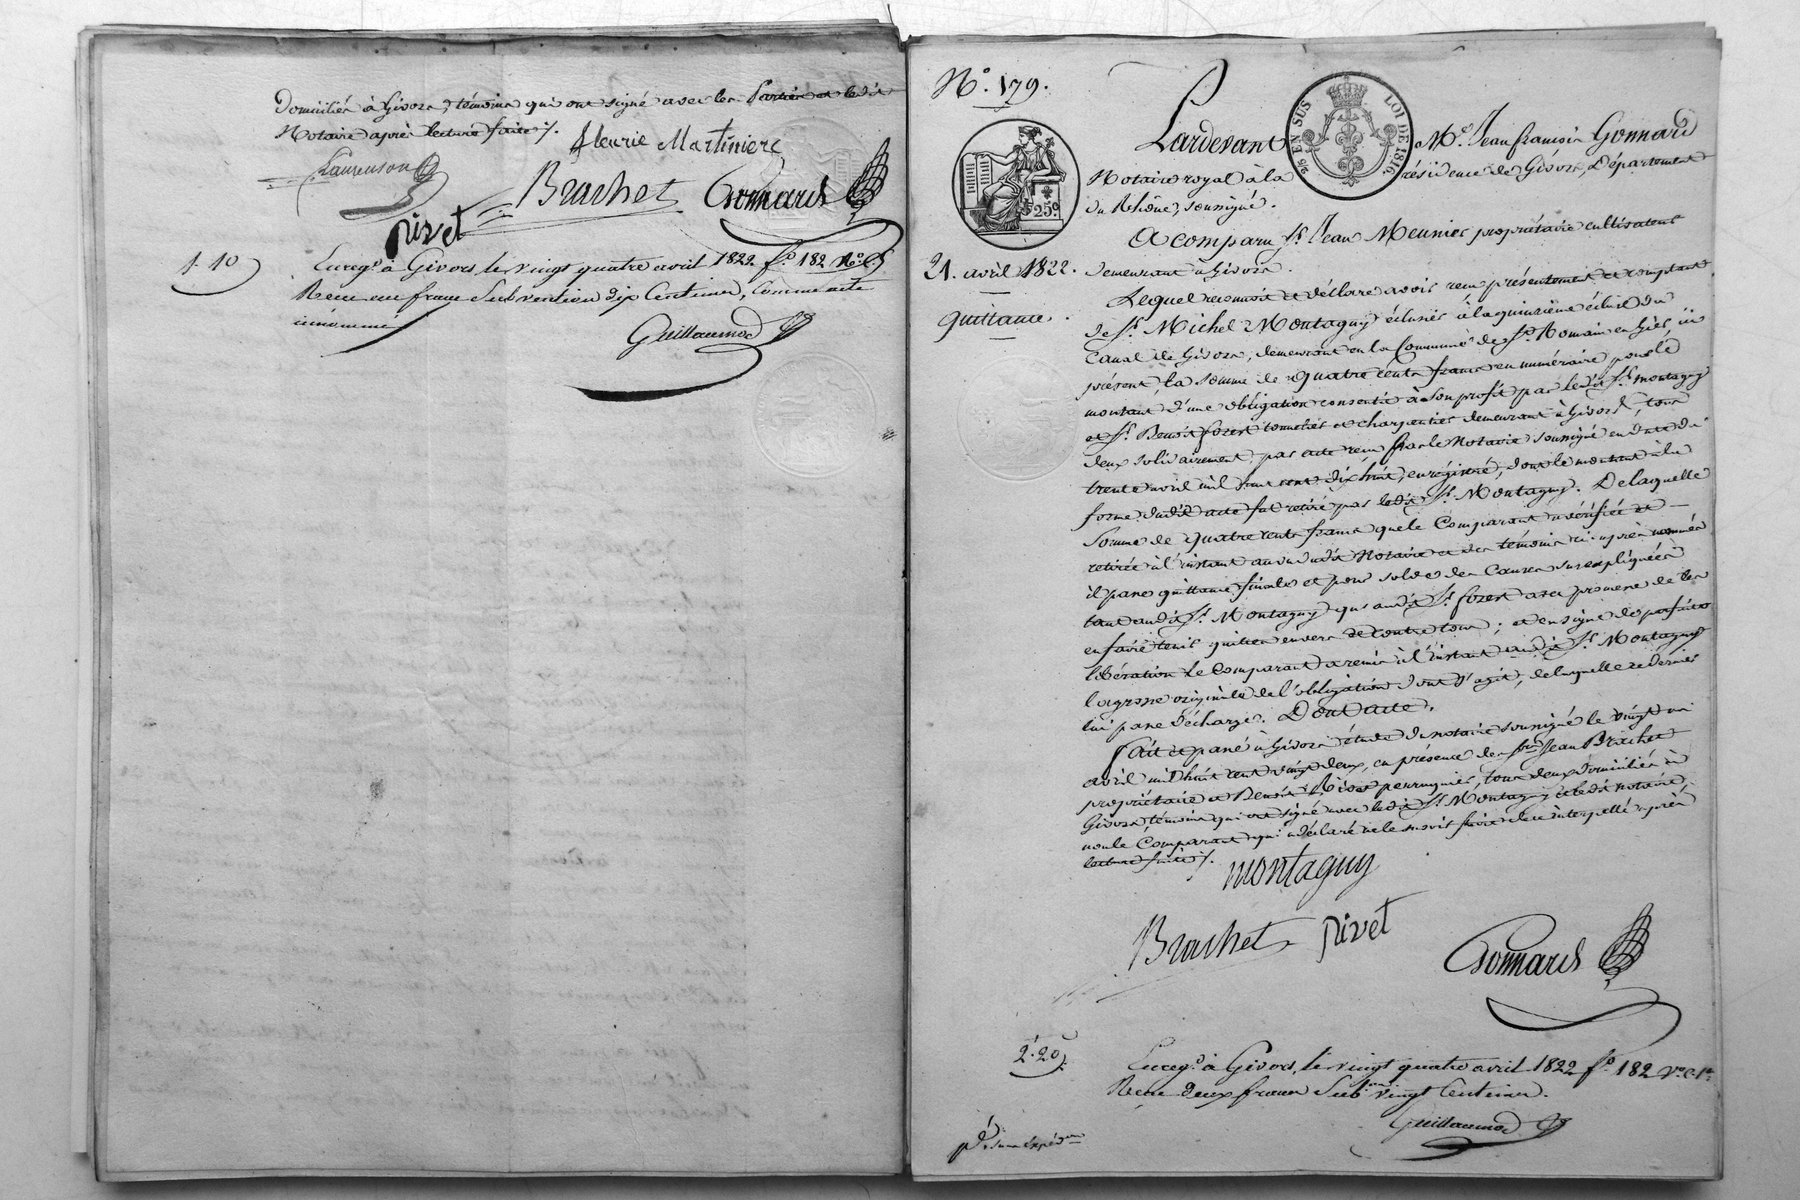 Domiciliés à Givors, témoins qui ont signé avec les Parties et ledit
Notaire après lecture faite ./.
fleurie Martiniere
Laurenson
Brachet Gonnard
Rivet
1-10
Enregé à Givors, le vingt quatre avril 1822 fo 182 Ro
Reçu un franc Subvention dix Centimes,
Guillaumod
No. 179.
Pardevant Me. Jean françois Gonnard
Notaire royal à la résidence de Givors, Département
du Rhône, soussigné.
25 EN SUS LOI DE 1816
25c
A comparu sr. Jean Meunier propriétaire cultivateur
21. avril 1822. demeurant à Givors.
quittance.
Lequel reconnoit et déclare avoir reçu présentement et comptant
de sr. Michel Montaguy éclusier à la quinzième écluse du
Canal de Givors, demeurant en la Commune de St. Romain en Giers, ici
présent, la somme de quatre cents francs en numéraire pour le
montant d'une obligation consentie à son profit par ledit sr. montaguy
et sr. Benoit fozert tonnelier et charpentier demeurant à Givors, tous
deux solidairement, par acte reçu par le Notaire soussigné en date du
trente avril mil huit cent dix huit, enregistré, dont le montant à la
forme dudit acte fut retiré par ledit sr. Montaguy. De laquelle
Somme de quatre cents francs que le Comparant a vérifiée et
retirée à l'instant au vu dudit Notaire et des témoins ci-après nommés
il passe quittance finale et pour solde des Causes sus expliquées
tant audit sr. Montaguy qu'audit sr. fozert avec promesse de les
en faire tenir quittes envers et contre tous; et en signe de parfaite
libération le Comparant a remis à l'instant audit sr. Montaguy
la grosse originale de l'obligation dont s'agit, de laquelle ce dernier
lui passe décharge. Dont acte.
fait et passé à Givors étude du notaire soussigné le vingt un
avril mil huit cent vingt deux, en présence de srs. Jean Brachet
propriétaire et Benoit Rivet perruquier, tous deux domiciliés à
Givors, témoins qui ont signé avec ledit sr. Montaguy et ledit notaire,
non le Comparant qui a déclaré ne le savoir faire de ce interpellé après
lecture faite ./.
montaguy
Brachet Rivet
Gonnard
2.20
Enregé à Givors, le vingt quatre avril 1822 fo 182 Vo C 1re
Reçu deux francs Subon vingt Centimes.
Guillaumod